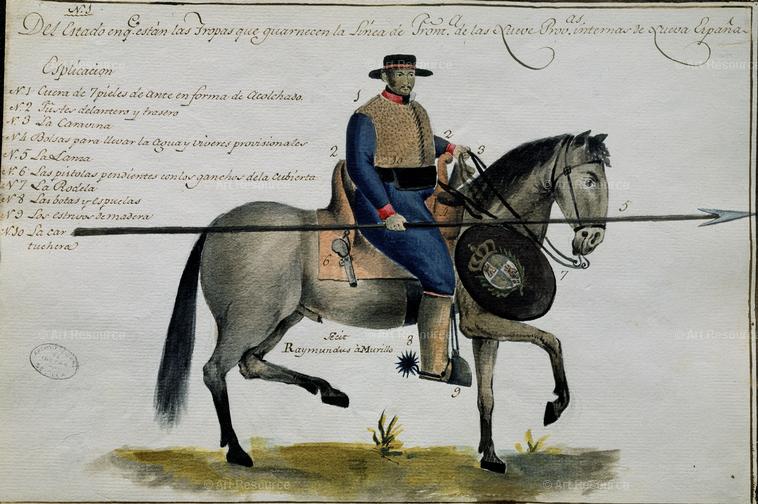 N.1
Del Estado enq.e están las Tropas que guarnecen la Linea de Front.a de las Nueve Prov.as internas de Nueva España
Esplicacion
N 1 Cuera de 7 pieles de Ante en forma de Acolchado.
N 2 Fustes delantero y trasero
N 3 La Caravina
N 4 Bolsas para llevar la Agua y viveres provisionales
N. 5 La Lanza
N. 6 Las pistolas pendientes con los ganchos de la Cubierta
N 7 La Rodela
N 8 Las botas y espuelas
N 9 Los estrivos de madera
N. 10 La car
tuchera
1
2
2
3
5
6
7
8
9
10
Fecit
Raymundus à Murillo
© Art Resource
© Art Resource
© Art Resource
© Art Resource
© Art Resource
© Art Resource
© Art Resource
© Art Resource
© Art Resource